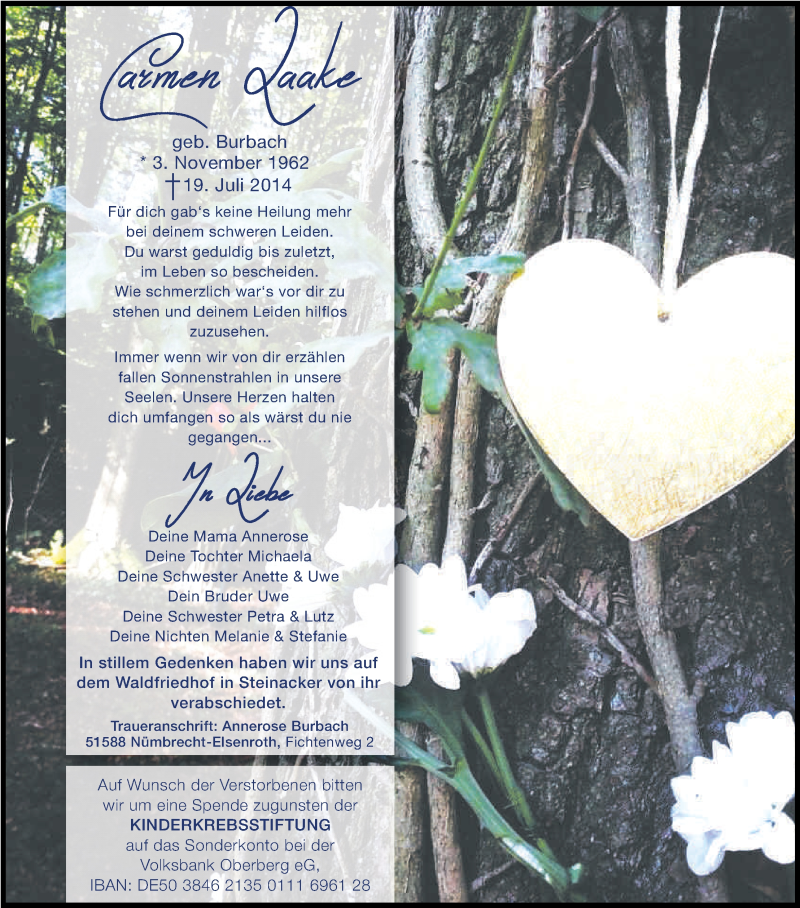 Carmen Laake
geb. Burbach
* 3. November 1962
† 19. Juli 2014
Für dich gab's keine Heilung mehr
bei deinem schweren Leiden.
Du warst geduldig bis zuletzt,
im Leben so bescheiden.
Wie schmerzlich war's vor dir zu
stehen und deinem Leiden hilflos
zuzusehen.
Immer wenn wir von dir erzählen
fallen Sonnenstrahlen in unsere
Seelen. Unsere Herzen halten
dich umfangen so als wärst du nie
gegangen...
In Liebe
Deine Mama Annerose
Deine Tochter Michaela
Deine Schwester Anette & Uwe
Dein Bruder Uwe
Deine Schwester Petra & Lutz
Deine Nichten Melanie & Stefanie
In stillem Gedenken haben wir uns auf
dem Waldfriedhof in Steinacker von ihr
verabschiedet.
Traueranschrift: Annerose Burbach
51588 Nümbrecht-Elsenroth, Fichtenweg 2
Auf Wunsch der Verstorbenen bitten
wir um eine Spende zugunsten der
KINDERKREBSSTIFTUNG
auf das Sonderkonto bei der
Volksbank Oberberg eG,
IBAN: DE50 3846 2135 0111 6961 28